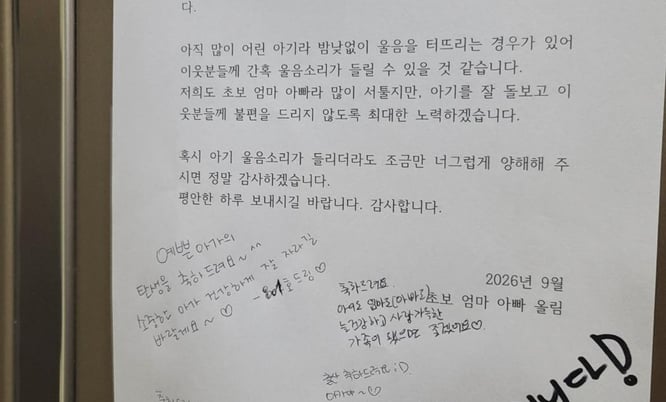 다.
아직 많이 어린 아기라 밤낮없이 울음을 터뜨리는 경우가 있어
이웃분들께 간혹 울음소리가 들릴 수 있을 것 같습니다.
저희도 초보 엄마 아빠라 많이 서툴지만, 아기를 잘 돌보고 이
웃분들께 불편을 드리지 않도록 최대한 노력하겠습니다.
혹시 아기 울음소리가 들리더라도 조금만 너그럽게 양해해 주
시면 정말 감사하겠습니다.
평안한 하루 보내시길 바랍니다. 감사합니다.
예쁜 아가의
탄생을 축하드려요~^^
소중한 아가 건강하게 잘 자라길
바랄게요~♡
호드림♡
2026년 9월
초보 엄마 아빠 올림
축하드려요.
늘 건강하고 사랑 가득한
가족이 됐으면 좋겠어요♡
출산 축하드려요 :D